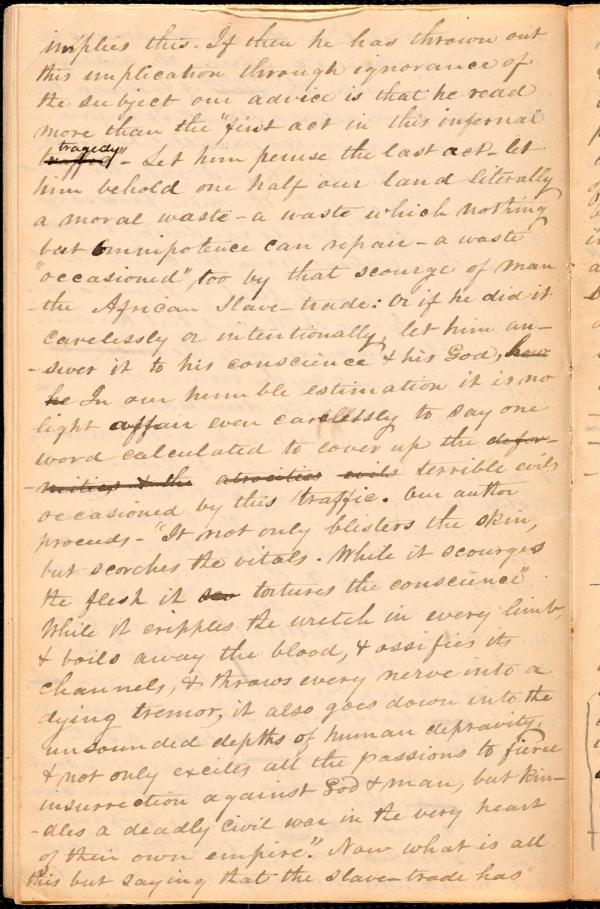 implies this. If then he has thrown out
this implication through ignorance of
the subject our advice is that he read
more than the "first act in this infernal
tragedy
traffic" - Let him peruse the last act - let
him behold one half our land literally
a moral waste - a waste which nothing
but Omnipotence can repair - a waste
"occasioned", too by that scourge of man
- the African Slave-trade: Or if he did it
carelessly or intentionally, let him an-
-swer it to his conscience & his God, how
he In our humble estimation it is no
light affair even carelessly to say one
word calculated to cover up the defor-
-mities & the atrocities evils terrible evils
occasioned by this traffic. Our author
proceeds - "It not only blisters the skin,
but scorches the vitals. While it scourges
the flesh it sco tortures the conscience"
While it cripples the wretch in every limb,
& boils away the blood, & ossifies its
channels, & throws every nerve into a
dying tremor, it also goes down into the
unsounded depths of human depravity,
& not only excites all the passions to fierce
insurrection against God & man, but kin-
-dles a deadly civil war in the very heart
of their own empire." Now what is all
this but saying that the slave-trade has